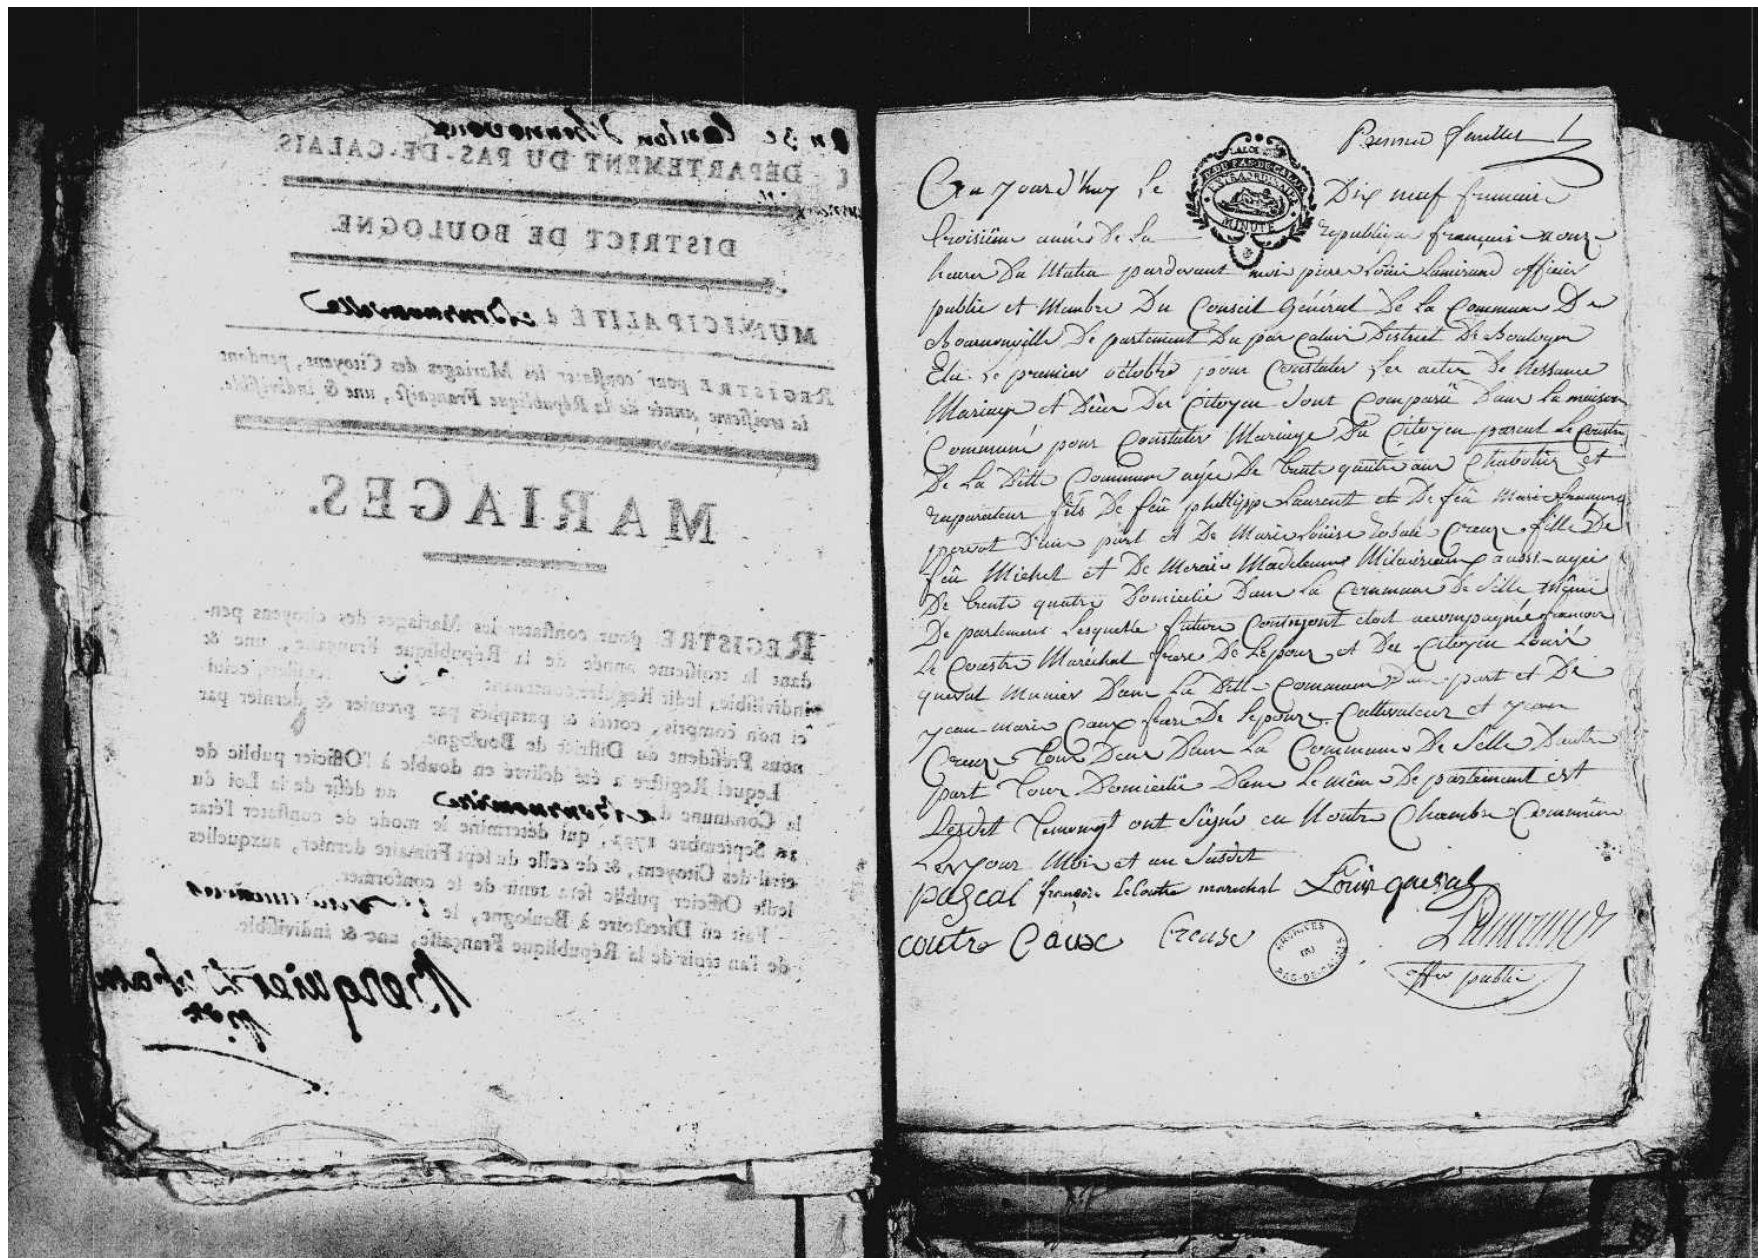 an 3e Canton d'henneveux
DÉPARTEMENT DU PAS-DE-CALAIS
DISTRICT DE BOULOGNE.
MUNICIPALITÉ d e Bournonville
REGISTRE pour constater les Mariages des Citoyens, pendant
la troisieme année de la République Française, une & indivisible.
MARIAGES.
REGISTRE pour constater les Mariages des citoyens pen-
dant la troisieme année de la République Française, une &
indivisible, ledit Registre contenant feuillets, celui
ci non compris, cottés & paraphés par premier & dernier par
nous Président du District de Boulogne.
Lequel Registre a été délivré en double à l'Officier public de
la Commune d e Bournonville au désir de la Loi du
20 Septembre 1792, qui détermine le mode de constater l'état
civil des Citoyens, & de celle du sept Frimaire dernier, auxquelles
ledit Officier public sera tenu de se conformer.
Fait en Directoire à Boulogne, le
de l'an trois de la République Française, une & indivisible.
Premier feuillet
LA LOI
DEP. DU PAS-DE-CALAIS
EXTRAORDINAIRE
MINUTE
Au jourd'huy Le Dix neuf frimaire
troisiême année De La republique français a onze
heures Du Matin pardevant moi pierre Loüis Lamirand officier
public et Membre Du Conseil Général De La Commune De
Bournonville De partement Du pas calais District De Boulogne
Elu Le premier octobre pour Constater Les actes De Nessance
Mariage et Décès Des Citoyen Sont Comparü Dans La maison
Commune pour Constater Mariage Du Citoyen pascal Le Coustre
De La Ditte Commune agée De trente quatre ans Chabotier et
reparateur fils De feü phillippe Laurent et De feü Marie françoise
perrot D'une part et De Marie Loüise rosalie Creuze fille De
feü Michel et De Marie Madeleine aussi agée
De trente quatre Domicilié Dans La Commune De Selle même
De partement Lesquelle future Conjoint etoit accompagné françois
Le Coustre Maréchal frere De Lepoux et Du Citoyen Louis
queval Munier Dans La Ditte Commune D'une part et De
jean marie Caux frere De Lepouze Cultivateur et jean
Creuze tous Deux Dans La Commune De Selle D'autre
part tous Domicilié Dans Le même De partement et
Lesdit temoingt ont Signé en Noutre Chambre Commune
Les jour Mois et an Susdit
pascal françois LeCoutre marechal Louis queval
coutre Caux Creuse Lamirand
offier public
ARCHIVES
DU
PAS-DE-CALAIS